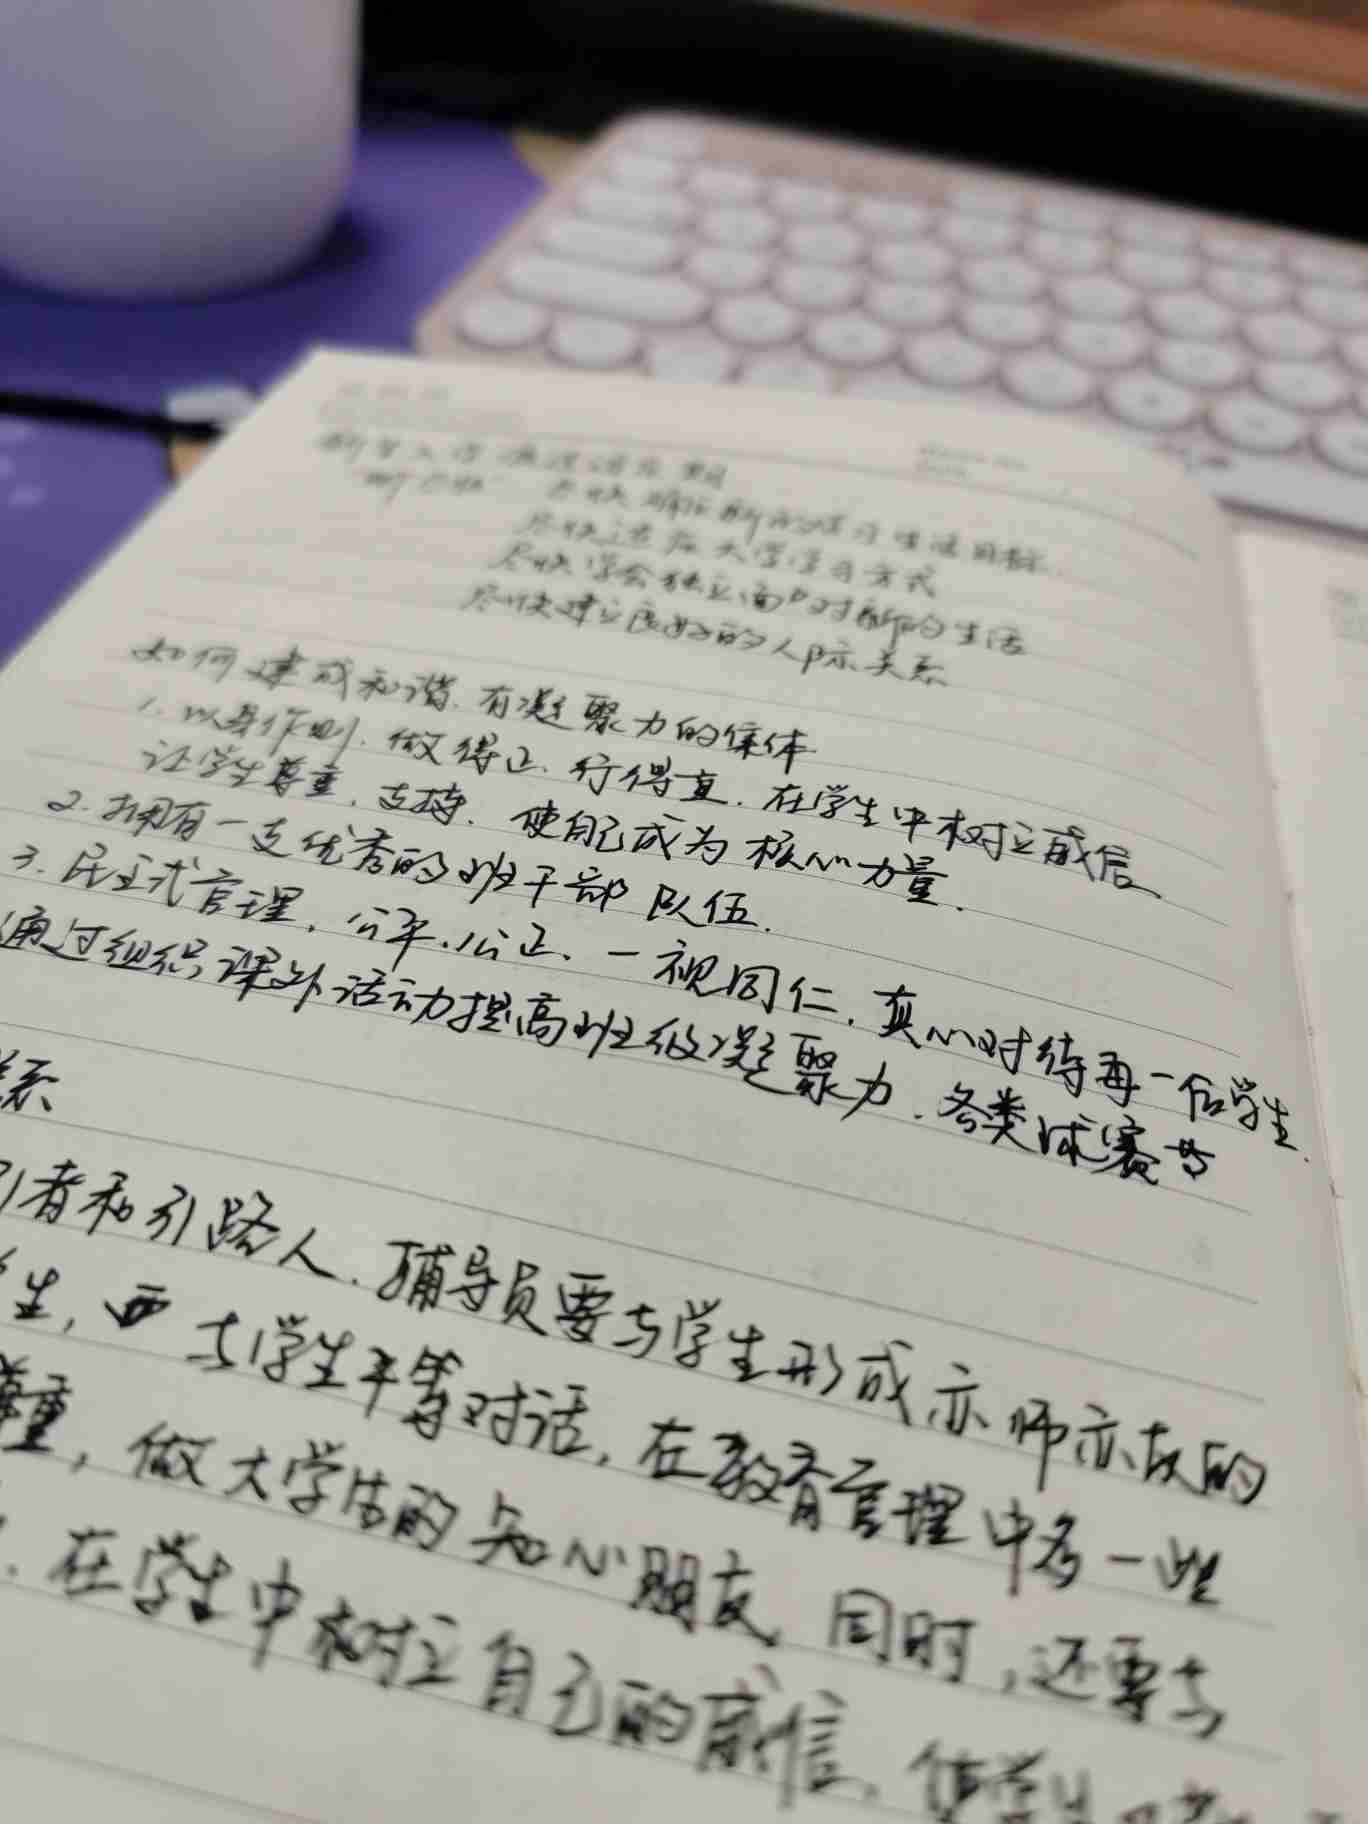 新生入学
尽快确立新的学习生活目标
尽快适应大学学习方式
尽快学会独立面对新的生活
尽快建立良好的人际关系
如何建成和谐、有凝聚力的集体
1. 以身作则、做得正、行得直、在学生中树立威信、
让学生尊重、支持、使自己成为核心力量.
2. 拥有一支优秀的班干部队伍.
3. 民主式管理, 公平、公正、一视同仁, 真心对待每一名学生.
通过组织课外活动提高班级凝聚力、各类球赛等
关系
引者和引路人. 辅导员要与学生形成亦师亦友的
学生, 与学生平等对话, 在教育管理中多一些
尊重, 做大学生的知心朋友, 同时, 还要与
在学生中树立自己的威信、使学生